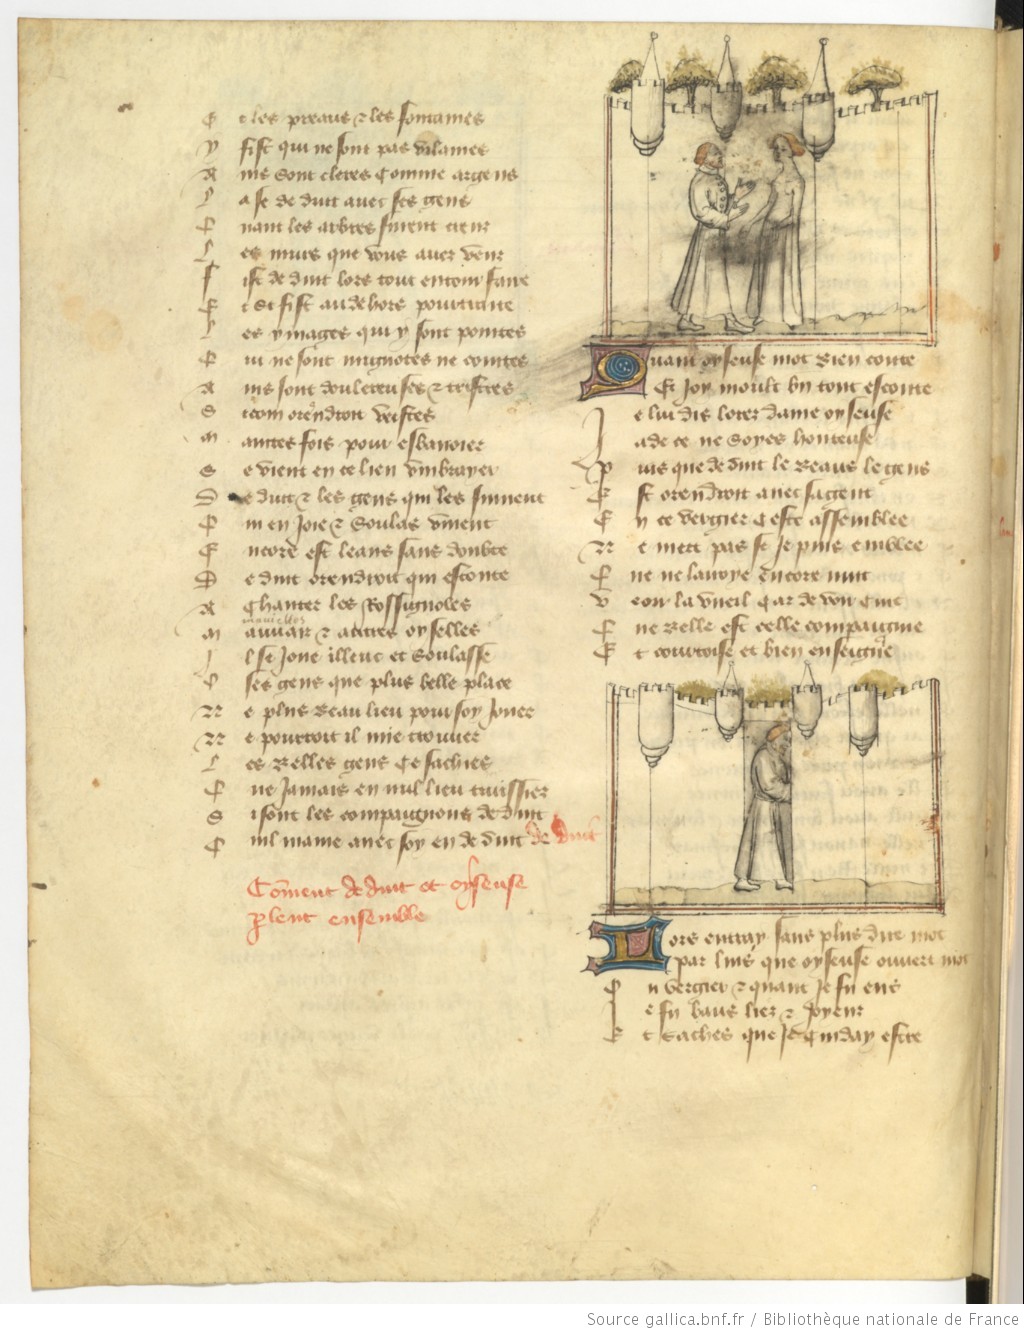 E t les preaus ⁊ les fontaines
Y fist qui ne sont pas vilaines
A ins sont cleres comme argens
L a se deduit avec ses gens
E nant les arbres furent
L es murs que vous avez veuz
F ist deduit lors tout entour faire
E t si fist au dehors pourtraire
L es ymages qui y sont pointes
Q ui ne sont mignotes ne cointes
A ins sont doulereuses ⁊ tristres
S icom orendroit veistes
M aintes fois pour esbanoier
S e vient en ce lieu umbroyer
D eduit ⁊ les gens qui les suivent
Q ui en joie ⁊ soulas vivent
E ncore est leans sans doubte
D eduit orendroit qui escoute
A chanter les rossignoles
mauvilles
M auviar ⁊ autres oyselles
I l se joue illeuc et soulasse
O ses gens que plus belle place
N e plus beau lieu pour soy jouer
N e pourroit il mie trouver
L es belles gens ce sachies
Q ue jamais en nul lieu truissier
S i sont les compaignons deduit
Q uil maine avec soy en deduit de duit
Coment deduit et oyseuse
plent ensemble
Quant oyseuse mot bien conte
Et joy moult bn tout escoute
J e lui dis lores dame oyseuse
J a de ce ne soyes honteuse
P uis que deduit le beaus le gens
E st orendroit avec sa gent
E n ce vergier ceste assemblee
N e mert pas se je puis emblee
Q ue ne la voye encore nuit
V eoir la vueil car de voir cuit
Q ue belle est celle compaigne
E t courtoise et bien enseigne
Lors entray sans plus dire mot
par luis que oyseuse ouvert mot
O u vergier ⁊ quant je fu ens
J e fu baus lier ⁊ joyeux
E t saches que je cuiday estre
Source gallica.bnf.fr / Bibliothèque nationale de France